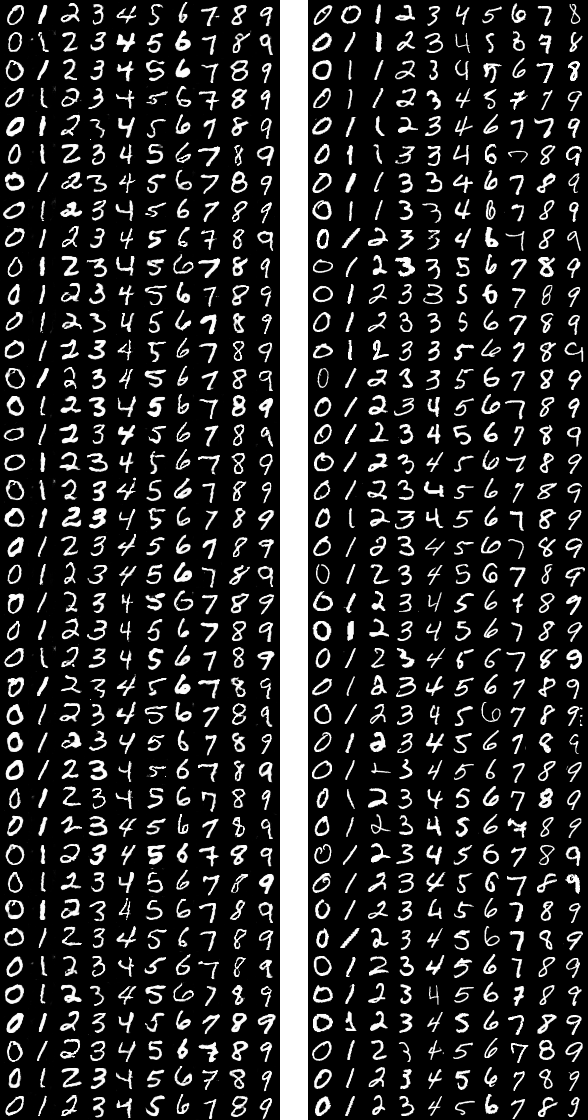 0 1 2 3 4 5 6 7 8 9
0 1 2 3 4 5 6 7 8 9
0 1 2 3 4 5 6 7 8 9
0 1 2 3 4 5 6 7 8 9
0 1 2 3 4 5 6 7 8 9
0 1 2 3 4 5 6 7 8 9
0 1 2 3 4 5 6 7 8 9
0 1 2 3 4 5 6 7 8 9
0 1 2 3 4 5 6 7 8 9
0 1 2 3 4 5 6 7 8 9
0 1 2 3 4 5 6 7 8 9
0 1 2 3 4 5 6 7 8 9
0 1 2 3 4 5 6 7 8 9
0 1 2 3 4 5 6 7 8 9
0 1 2 3 4 5 6 7 8 9
0 1 2 3 4 5 6 7 8 9
0 1 2 3 4 5 6 7 8 9
0 1 2 3 4 5 6 7 8 9
0 1 2 3 4 5 6 7 8 9
0 1 2 3 4 5 6 7 8 9
0 1 2 3 4 5 6 7 8 9
0 1 2 3 4 5 6 7 8 9
0 1 2 3 4 5 6 7 8 9
0 1 2 3 4 5 6 7 8 9
0 1 2 3 4 5 6 7 8 9
0 1 2 3 4 5 6 7 8 9
0 1 2 3 4 5 6 7 8 9
0 1 2 3 4 5 6 7 8 9
0 1 2 3 4 5 6 7 8 9
0 1 2 3 4 5 6 7 8 9
0 1 2 3 4 5 6 7 8 9
0 1 2 3 4 5 6 7 8 9
0 1 2 3 4 5 6 7 8 9
0 1 2 3 4 5 6 7 8 9
0 1 2 3 4 5 6 7 8 9
0 1 2 3 4 5 6 7 8 9
0 1 2 3 4 5 6 7 8 9
0 1 2 3 4 5 6 7 8 9
0 1 2 3 4 5 6 7 8 9
0 1 2 3 4 5 6 7 8 9
0 0 1 2 3 4 5 6 7 8
0 1 1 2 3 4 5 7 8
0 1 1 2 3 4 5 6 7 8
0 1 1 2 3 4 5 7 7 9
0 1 1 2 3 4 6 7 7 9
0 1 1 3 3 4 6 7 8 9
0 1 1 3 3 4 6 7 8 9
0 1 1 3 3 4 6 7 8 9
0 1 2 3 3 4 6 7 8 9
0 1 2 3 3 5 6 7 8 9
0 1 2 3 3 5 6 7 8 9
0 1 2 3 3 5 6 7 8 9
0 1 2 3 3 5 6 7 8 9
0 1 2 3 3 5 6 7 8 9
0 1 2 3 4 5 6 7 8 9
0 1 2 3 4 5 6 7 8 9
0 1 2 3 4 5 6 7 8 9
0 1 2 3 4 5 6 7 8 9
0 1 2 3 4 5 6 7 8 9
0 1 2 3 4 5 6 7 8 9
0 1 2 3 4 5 6 7 8 9
0 1 2 3 4 5 6 7 8 9
0 1 2 3 4 5 6 7 8 9
0 1 2 3 4 5 6 7 8 9
0 1 2 3 4 5 6 7 8 9
0 1 2 3 4 5 6 7 8 9
0 1 2 3 4 5 6 7 8 9
0 1 2 3 4 5 6 7 8 9
0 1 2 3 4 5 6 7 8 9
0 1 2 3 4 5 6 7 8 9
0 1 2 3 4 5 6 7 8 9
0 1 2 3 4 5 6 7 8 9
0 1 2 3 4 5 6 7 8 9
0 1 2 3 4 5 6 7 8 9
0 1 2 3 4 5 6 7 8 9
0 1 2 3 4 5 6 7 8 9
0 1 2 3 4 5 6 7 8 9
0 1 2 3 4 5 6 7 8 9
0 1 2 3 4 5 6 7 8 9
0 1 2 3 4 5 6 7 8 9